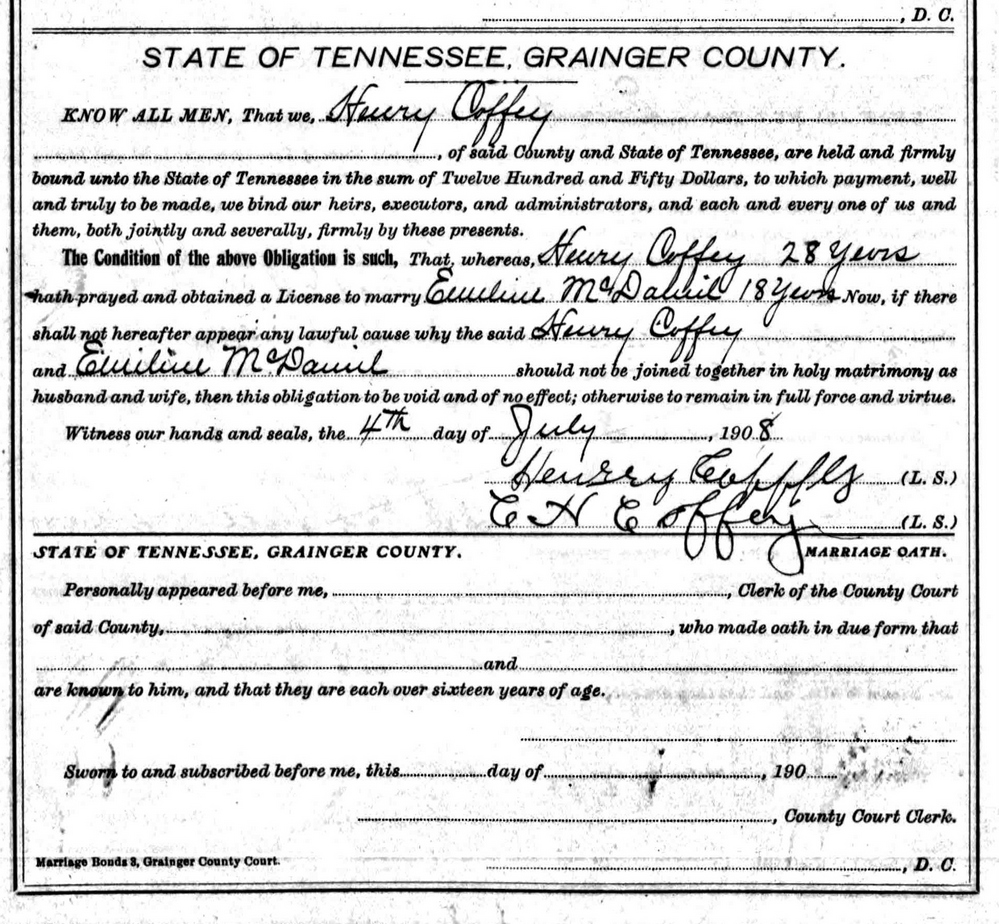 , D. C.
STATE OF TENNESSEE, GRAINGER COUNTY.
KNOW ALL MEN, That we, Henry Coffey
, of said County and State of Tennessee, are held and firmly
bound unto the State of Tennessee in the sum of Twelve Hundred and Fifty Dollars, to which payment, well
and truly to be made, we bind our heirs, executors, and administrators, and each and every one of us and
them, both jointly and severally, firmly by these presents.
The Condition of the above Obligation is such, That, whereas, Henry Coffey 28 Years
hath prayed and obtained a License to marry Emeline McDaniel 18 Years Now, if there
shall not hereafter appear any lawful cause why the said Henry Coffey
and Emeline McDaniel should not be joined together in holy matrimony as
husband and wife, then this obligation to be void and of no effect; otherwise to remain in full force and virtue.
Witness our hands and seals, the 4th day of July, 1908
Henry Coffey (L. S.)
C H Coffey (L. S.)
STATE OF TENNESSEE, GRAINGER COUNTY. MARRIAGE OATH.
Personally appeared before me, , Clerk of the County Court
of said County, , who made oath in due form that
and
are known to him, and that they are each over sixteen years of age.
Sworn to and subscribed before me, this day of , 190
, County Court Clerk.
Marriage Bonds 3, Grainger County Court. , D. C.